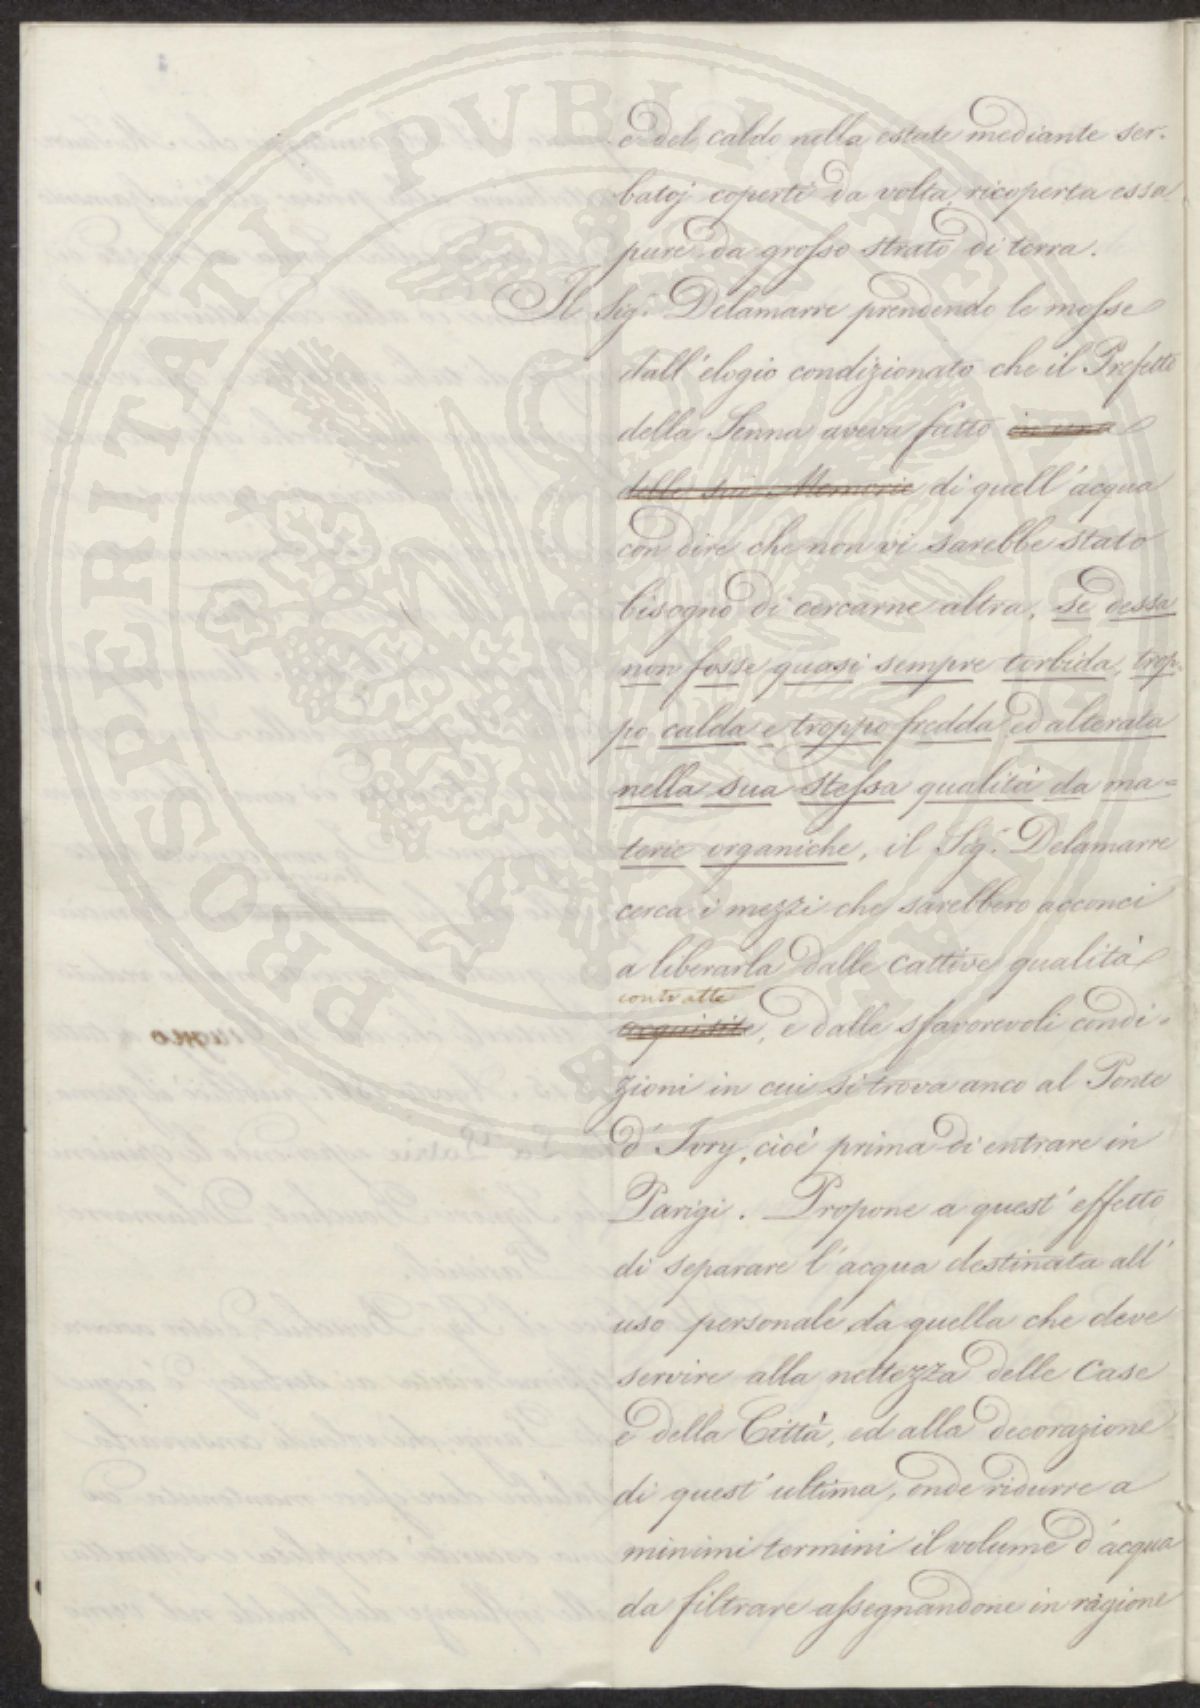 e del caldo nella estate mediante ser-
batoj coperti da volta, ricoperta essa
pure da grosso strato di terra.
Il Sig.r Delamarre prendendo le mosse
dall'elogio condizionato che il Prefetto
della Senna aveva fatto in una
delle sue Memorie di quell'acqua
con dire che non vi sarebbe stato
bisogno di cercarne altra, se dessa
non fosse quasi sempre torbida, trop-
po calda e troppo fredda ed alterata
nella sua stessa qualità da ma-
terie organiche, il Sig.r Delamarre
cerca i mezzi che sarebbero acconci
a liberarla dalle cattive qualità
contratte
acquisite, e dalle sfavorevoli condi-
zioni in cui si trova anco al Ponte
d'Ivry, cioè prima di entrare in
Parigi. Propone a quest'effetto
di separare l'acqua destinata all'
uso personale da quella che deve
servire alla nettezza delle Case
e della Città, ed alla decorazione
di quest'ultima, onde ridurre a
minimi termini il volume d'acqua
da filtrare assegnandone in ragione
PROSPERITATI PVBLICAE